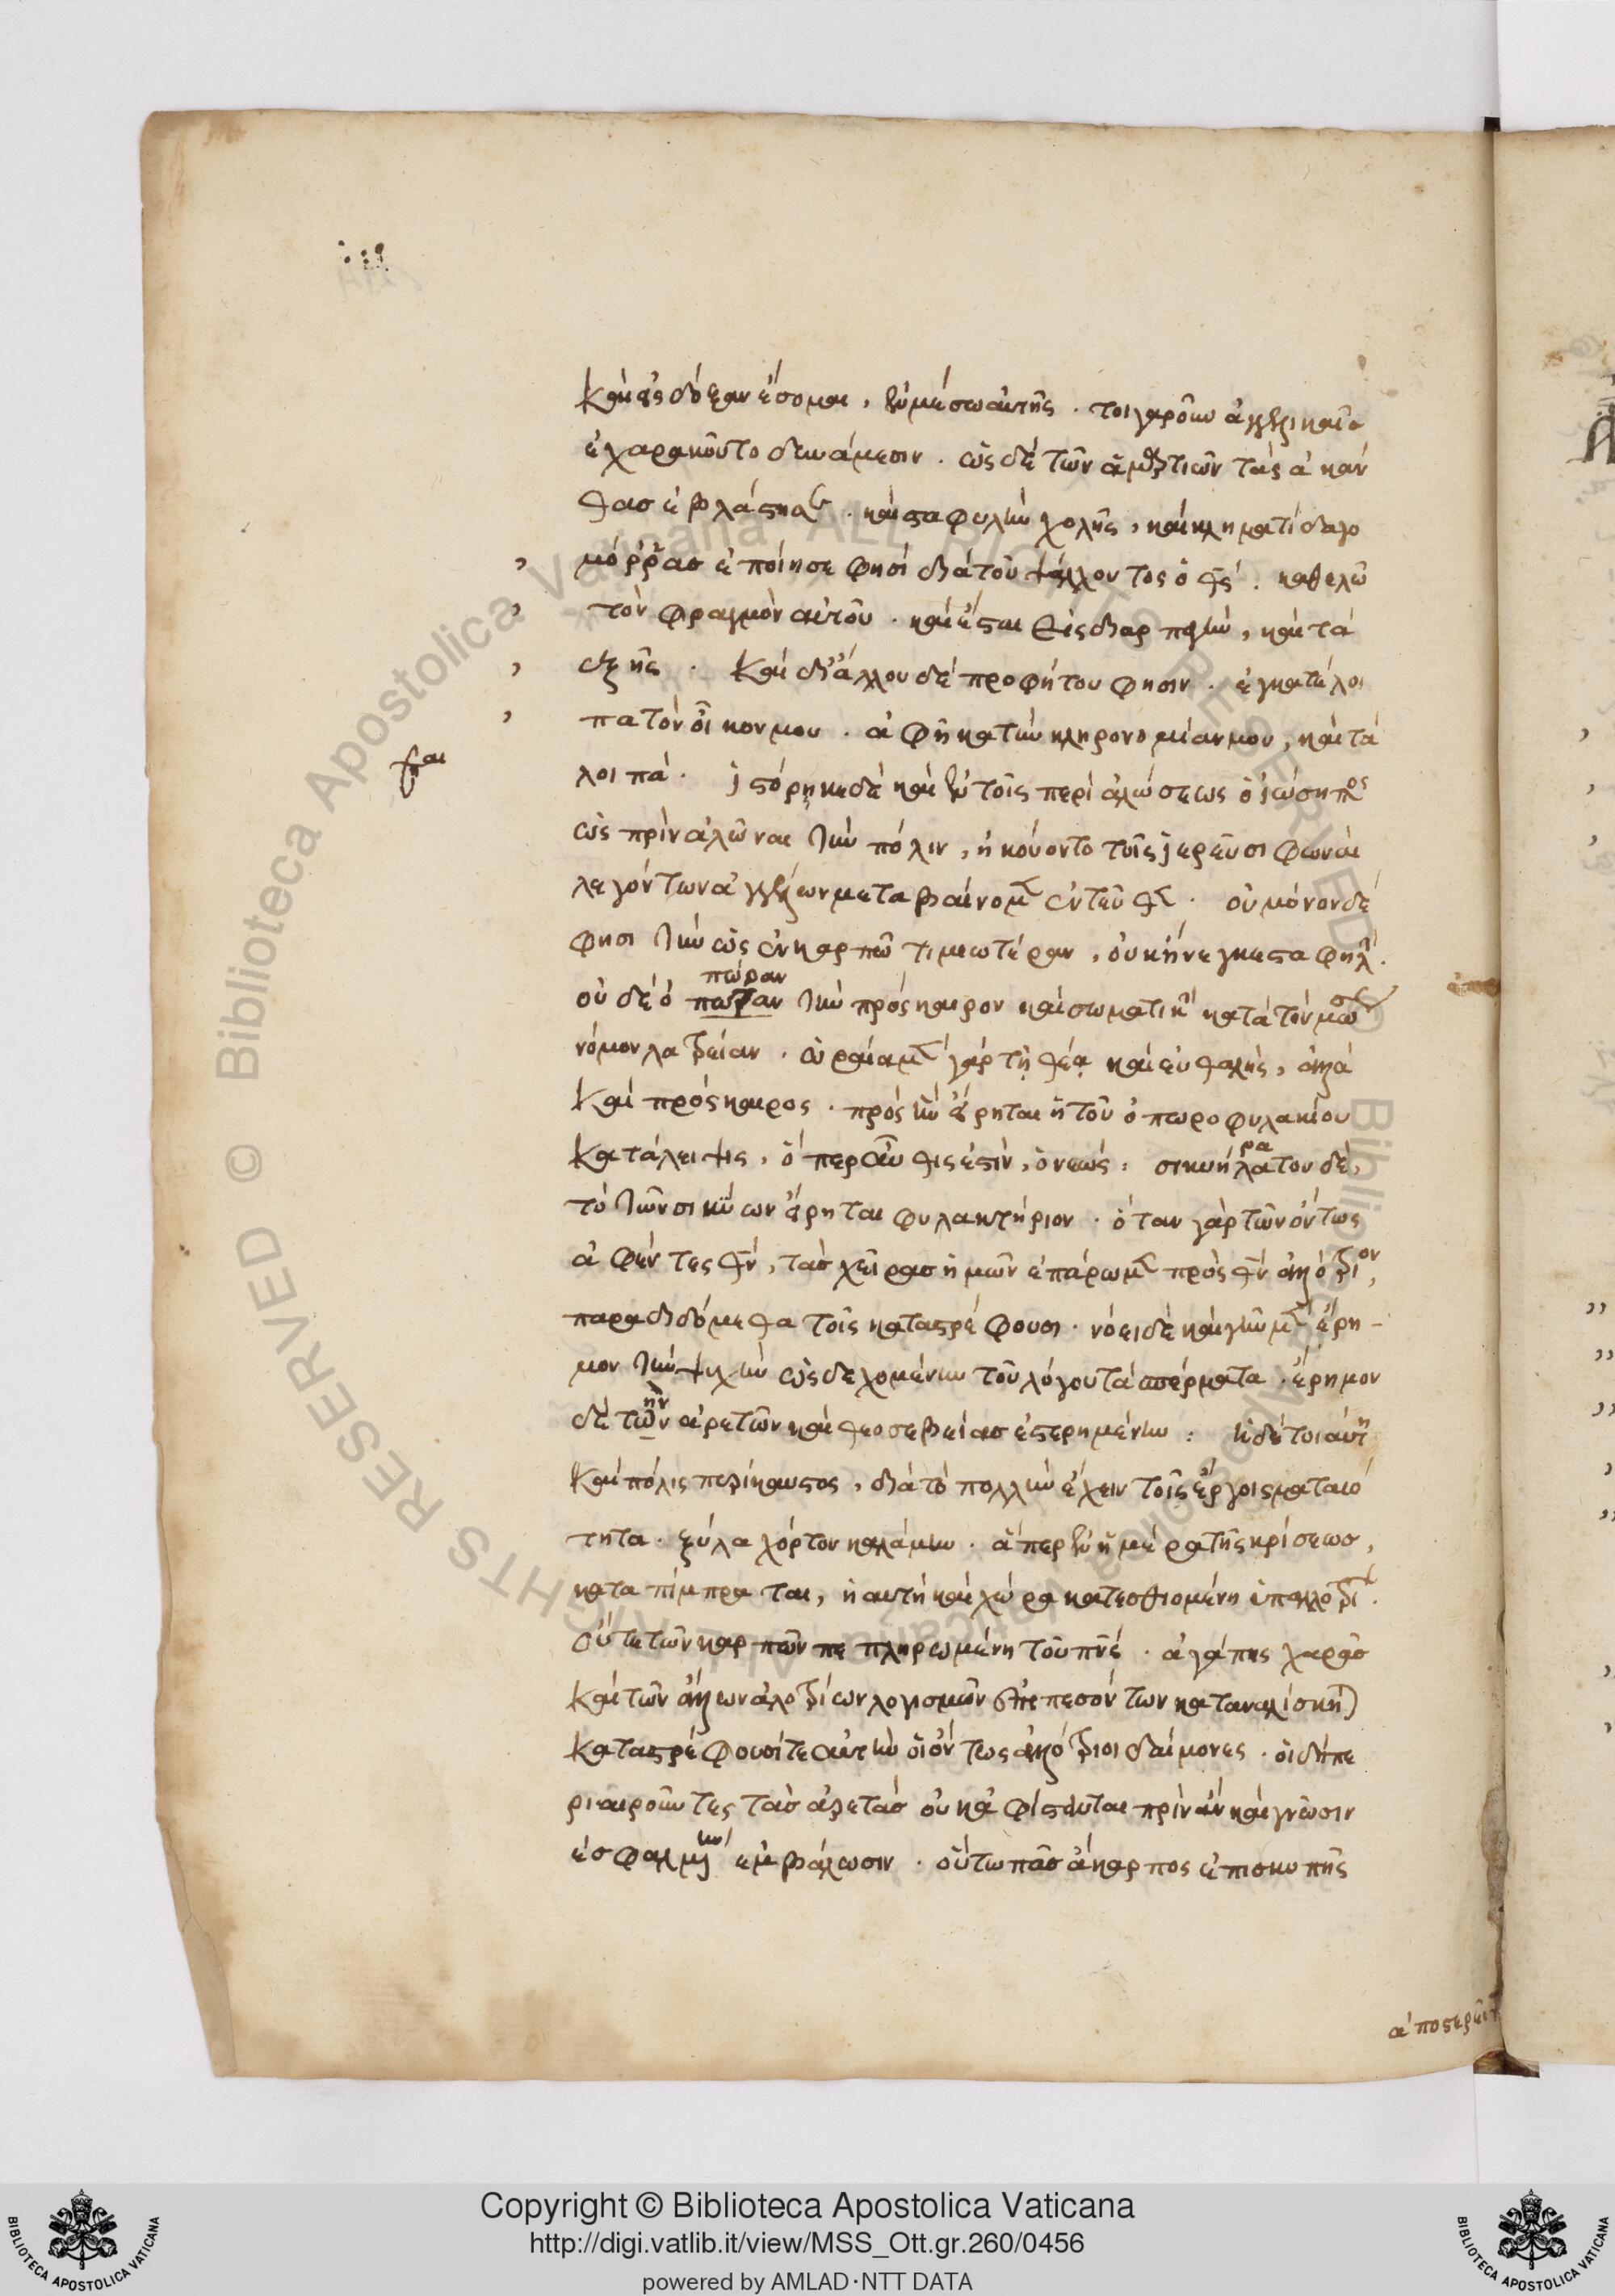 καὶ εἰς δόξαν ἔσομαι, ἐν μέσω αὐτῆς. τοιγαροῦν ἀγγελικαῖς
ἐχαρακοῦντο δυνάμεσιν. ὡς δὲ τῶν ἁμαρτιῶν τὰς ἀκάν
θας ἐβλάστησαν. καὶ σταφυλὴν χολῆς, καὶ κληματίδα γο
μόρρας ἐποίησε φησὶ διὰ τοῦ ψάλλοντος ὁ θς. καθελῶ
τὸν φραγμὸν αὐτοῦ. καὶ ἔσται εἰς διαρπαγὴν, καὶ τὰ
ἑξῆς. καὶ δι' ἄλλου δὲ προφήτου φησιν. ἐγκατέλοι
πα τὸν οἶκον μου. ἀφῆκα τὴν κληρονομίαν μου, καὶ τὰ
λοιπά. ἱστόρηκε δὲ καὶ ἐν τοῖς περὶ ἁλώσεως ὁ ἰώσηπος
ὡς πρὶν ἁλῶναι τὴν πόλιν, ἠκούοντο τοῖς ἱερεῦσι φωναὶ
λεγόντων ἀγγέλων μεταβαίνομεν ἐντεῦθεν. οὐ μόνον δέ
φησι τὴν ὡς ἐν καρπῶ τιμιωτέραν, οὐκ ἤνεγκε σταφυλήν.
οὐδὲ ὀπώραν τὴν πρόσκαιρον καὶ σωματικὴν κατὰ τὸν μωσέως
πώραν
νόμον λατρείαν. ὡραία μὲν γὰρ τῆ θέα καὶ εὐθαλής, ἀλλὰ
καὶ πρόσκαιρος. πρὸς ἣν εἴρηται ἡ τοῦ ὀπωροφυλακίου
κατάλειψις, ὅπερ αὖθις ἐστὶν, ὁ νεώς: σικυήλατον δὲ,
ρα
τὸ τῶν σικύων εἴρηται φυλακτήριον. ὅταν γὰρ τῶν ὄντως
ἀφέντες θν, τὰς χεῖρας ἡμῶν ἐπάρωμεν πρὸς θν ἀλλότριον,
παραδιδόμεθα τοῖς καταστρέφουσι. νόει δὲ καὶ γῆν μὲν ἔρη-
μον τὴν ψυχὴν ὡς δεχομένην τοῦ λόγου τὰ σπέρματα. ἔρημον
δὲ τῶν ἀρετῶν καὶ θεοσεβείας ἐστερημένην: ἡ δὲ τοιαύτη
ην
καὶ πόλις περίκαυστος, διὰ τὸ πολλὴν ἔχειν τοῖς ἔργοις ματαιό
τητα. ξύλα χόρτον καλάμην. ἅπερ ἐν ἡμέρα τῆς κρίσεως,
καταπίμπραται, ἡ αὐτὴ καὶ χώρα κατεσθιομένη ὑπ' ἀλλοτρίων.
οὔτε τῶν καρπῶν πεπληρωμένη τοῦ πνς. ἀγάπης χαρᾶς
καὶ τῶν ἄλλων ἀλλοτρίων λογισμῶν ἐπιπεσόντων καταναλίσκεται
καταστρέφουσί τε αὐτὴν οἱ ὄντως ἀλλότριοι δαίμονες. οἳ δὴ πε
ριαιροῦντες τὰς ἀρετὰς οὐκ ἀφίστανται πρὶν ἂν καὶ γνῶσιν
ἐσφαλμένην ἐμβάλωσιν. οὕτω πᾶς ἄκαρπος ἐπισκοπῆς
Copyright © Biblioteca Apostolica Vaticana
http://digi.vatlib.it/view/MSS_Ott.gr.260/0456
powered by AMLAD·NTT DATA